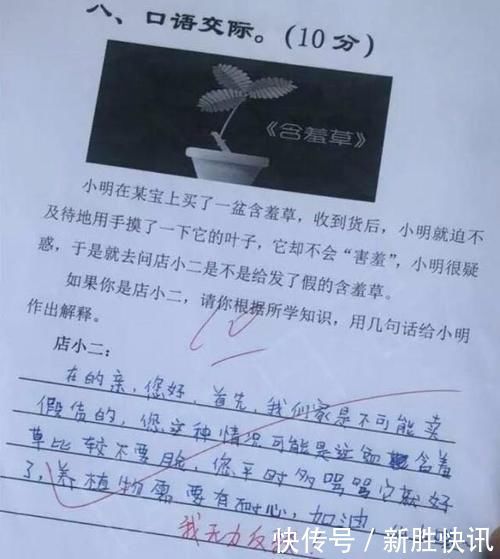 八、口语交际。(10分)
《含羞草》
小明在某宝上买了一盆含羞草，收到货后，小明就迫不
及待地用手摸了一下它的叶子，它却不会“害羞”，小明很疑
惑，于是就去问店小二是不是给发了假的含羞草。
如果你是店小二，请你根据所学知识，用几句话给小明
作出解释。
10
店小二：
在的亲，您好，首先，我们家是不可能卖
假货的，您这种情况可能是这刼含羞
草比较不要脸，您平时多骂骂它就好
了，养植物需要有耐心，加油
我无力反
快传号/新胜快讯